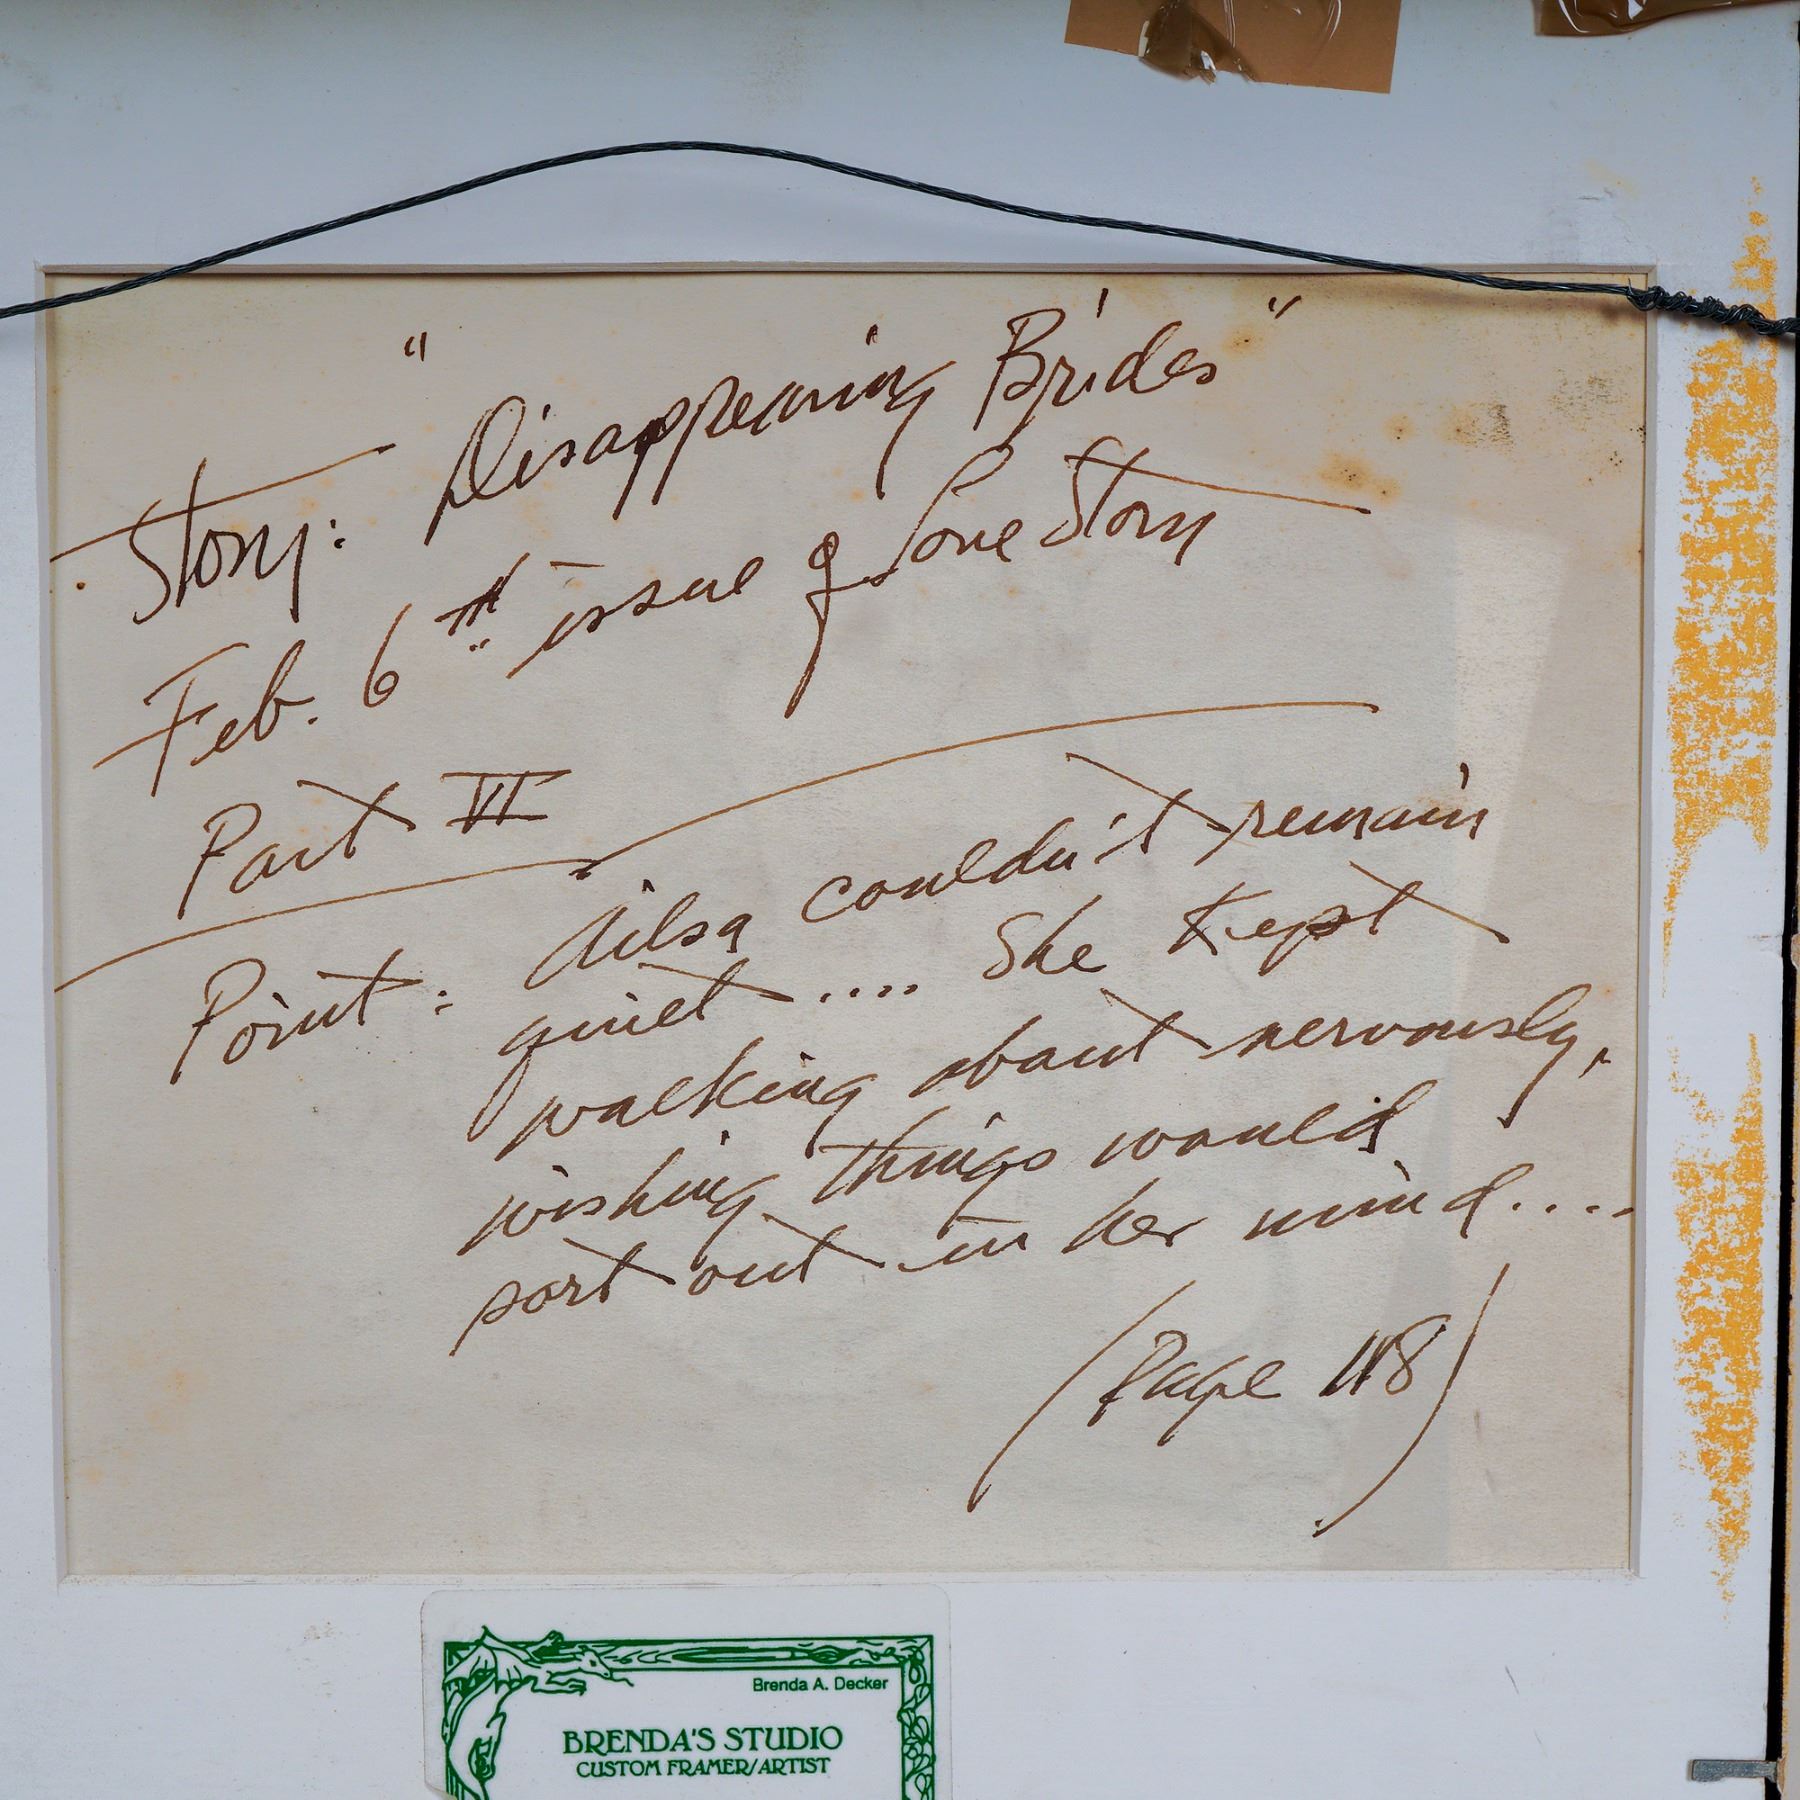 Story: "Disappearing Brides"
Feb. 6th issue of Love Story
Part VI
Point: Ailsa couldn't remain
quiet.... She kept
walking about nervously,
wishing things would
sort out in her mind....
(Page 118)
Brenda A. Decker
BRENDA'S STUDIO
CUSTOM FRAMER/ARTIST